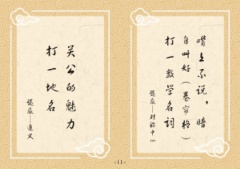 嘴上不说，暗
自叫好（卷帘格）
打一数学名词
谜底——对称中心
关公的魅力
打一地名
谜底——遵义
-11-